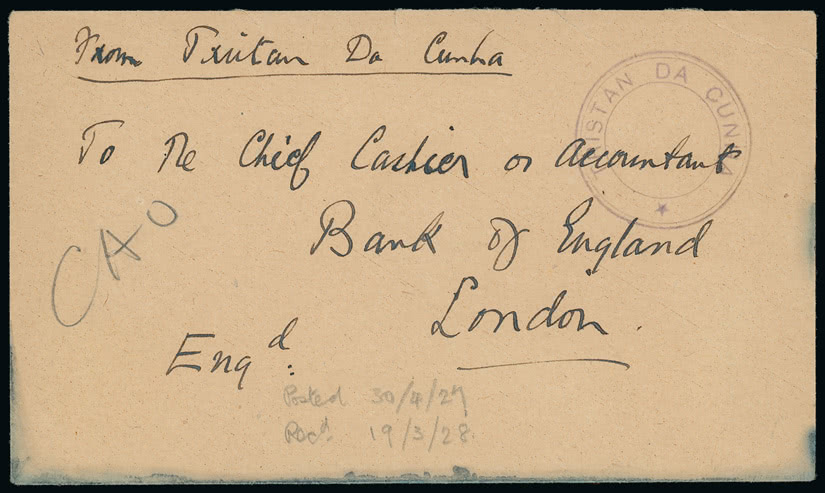 From Tristan Da Cunha
TRISTAN DA CUNHA
To The Chief Cashier or Accountant
Bank of England
London.
Engd:
CAO
Posted 30/4/27
Recd. 19/3/28